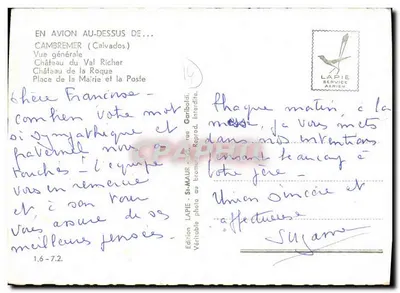 EN AVION AU-DESSUS DE...
CAMBREMER (Calvados)
Vue générale
Château du Val Richer
Château de la Roque
Place de la Mairie et la Poste
LAPIE
SERVICE
AERIEN
chère Francoise -
combien votre mot
si sympathique et
fraternel nous a
touchés - l'équipe
vous en remercie
et à son tour
vous assure de ses
meilleures pensées.
1.6-7.2.
Edition LAPIE - St-MAUR Garibaldi.
Véritable photo au Reprod. Interdite.
Chaque matin, à la
messe, je vous mets
dans nos intentions
pensant beaucoup à
votre père -
Union sincère et
affectueuse
Suzanne